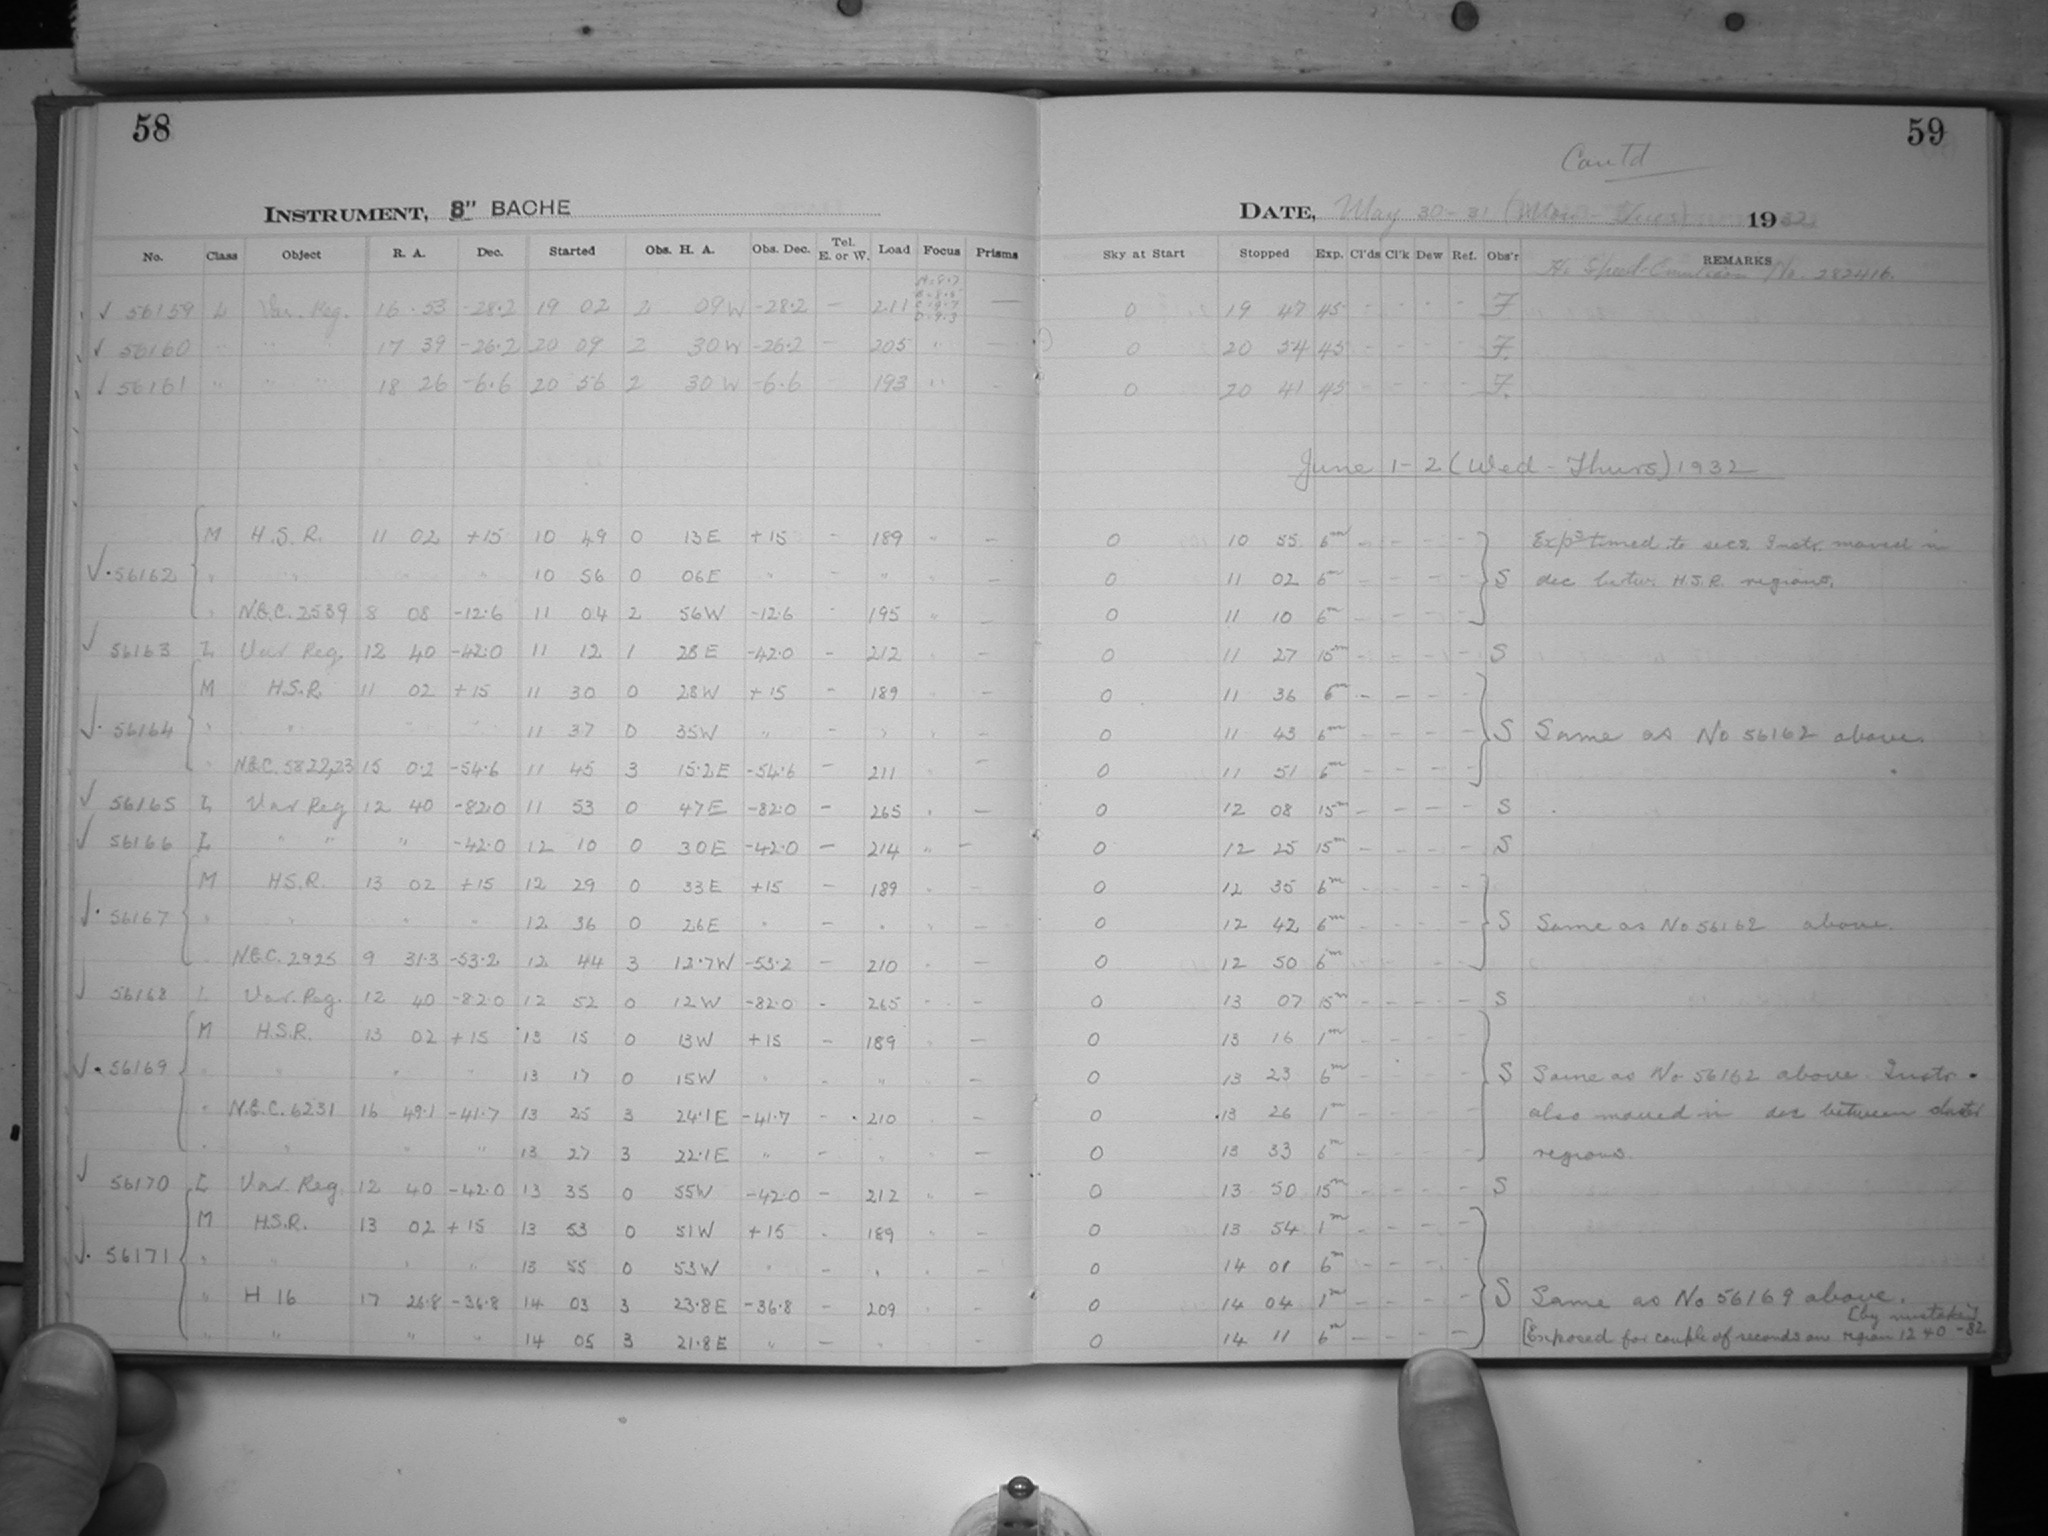 58
INSTRUMENT, 8" BACHE
No. Class Object R. A. Dec. Started Obs. H. A. Obs. Dec. Tel. E. or W. Load Focus Prisms
√ 56159 L Var. Reg. 16 53 -28.2 19 02 2 09 W -28.2 - 211 -
√ 56160 " " " 17 39 -26.2 20 09 2 30 W -26.2 - 205 " -
√ 56161 " " " 18 26 -6.6 20 56 2 30 W -6.6 193 " -
M H.S.R. 11 02 +15 10 49 0 13 E +15 - 189 " -
√. 56162 " " " " 10 56 0 06 E " - " " -
" N.G.C. 2539 8 08 -12.6 11 04 2 56 W -12.6 - 195 " -
√ 56163 L Var Reg. 12 40 -42.0 11 12 1 28 E -42.0 - 212 " -
M H.S.R. 11 02 +15 11 30 0 28 W +15 - 189 " -
√. 56164 " " " " 11 37 0 35 W " - " " -
" N.G.C. 5822,23 15 0.2 -54.6 11 45 3 15.2 E -54.6 - 211 " -
√ 56165 L Var Reg 12 40 -82.0 11 53 0 47 E -82.0 - 265 " -
√ 56166 L " " " -42.0 12 10 0 30 E -42.0 - 214 " -
M H.S.R. 13 02 +15 12 29 0 33 E +15 - 189 " -
√. 56167 " " " " 12 36 0 26 E " - " " -
" N.G.C. 2925 9 31.3 -53.2 12 44 3 12.7 W -53.2 - 210 " -
√ 56168 L Var. Reg. 12 40 -82.0 12 52 0 12 W -82.0 - 265 " -
M H.S.R. 13 02 +15 13 15 0 13 W +15 - 189 " -
√. 56169 " " " " 13 17 0 15 W " - " " -
" N.G.C. 6231 16 49.1 -41.7 13 25 3 24.1 E -41.7 - 210 -
" " " " 13 27 3 22.1 E " - " " -
√ 56170 L Var. Reg. 12 40 -42.0 13 35 0 55 W -42.0 - 212 " -
M H.S.R. 13 02 +15 13 53 0 51 W +15 - 189 " -
√. 56171 " " " " 13 55 0 53 W " - " " -
" H 16 17 26.8 -36.8 14 03 3 23.8 E -36.8 - 209 " -
" " " " 14 05 3 21.8 E " - " " -
59
Cont'd
DATE, May 30-31 (Mon - Tues) 1932
Sky at Start Stopped Exp. Cl'ds Cl'k Dew Ref. Obs'r REMARKS
Hi Speed Emulsion No. 282416.
0 19 47 45 - - - - F
0 20 54 45 - - - - F.
0 20 41 45 - - - - F.
June 1-2 (Wed - Thurs) 1932
0 10 55 6m - - - - Exps timed to secs. Instr. moved in
0 11 02 6m - - - - S dec betw. H.S.R. regions.
0 11 10 6m - - - -
0 11 27 15m - - - - S
0 11 36 6m - - - -
0 11 43 6m - - - - S Same as No 56162 above.
0 11 51 6m - - - -
0 12 08 15m - - - - S
0 12 25 15m - - - - S
0 12 35 6m - - - -
0 12 42 6m - - - - S Same as No 56162 above.
0 12 50 6m - - - -
0 13 07 15m - - - - S
0 13 16 1m - - - -
0 13 23 6m - - - - S Same as No 56162 above. Instr.
0 13 26 1m - - - - also moved in dec between cluster
0 13 33 6m - - - - regions.
0 13 50 15m - - - - S
0 13 54 1m - - - -
0 14 01 6m - - - -
0 14 04 1m - - - - S Same as No 56169 above.
[by mistake]
0 14 11 6m - - - - [Exposed for couple of seconds on region 12 40 -82